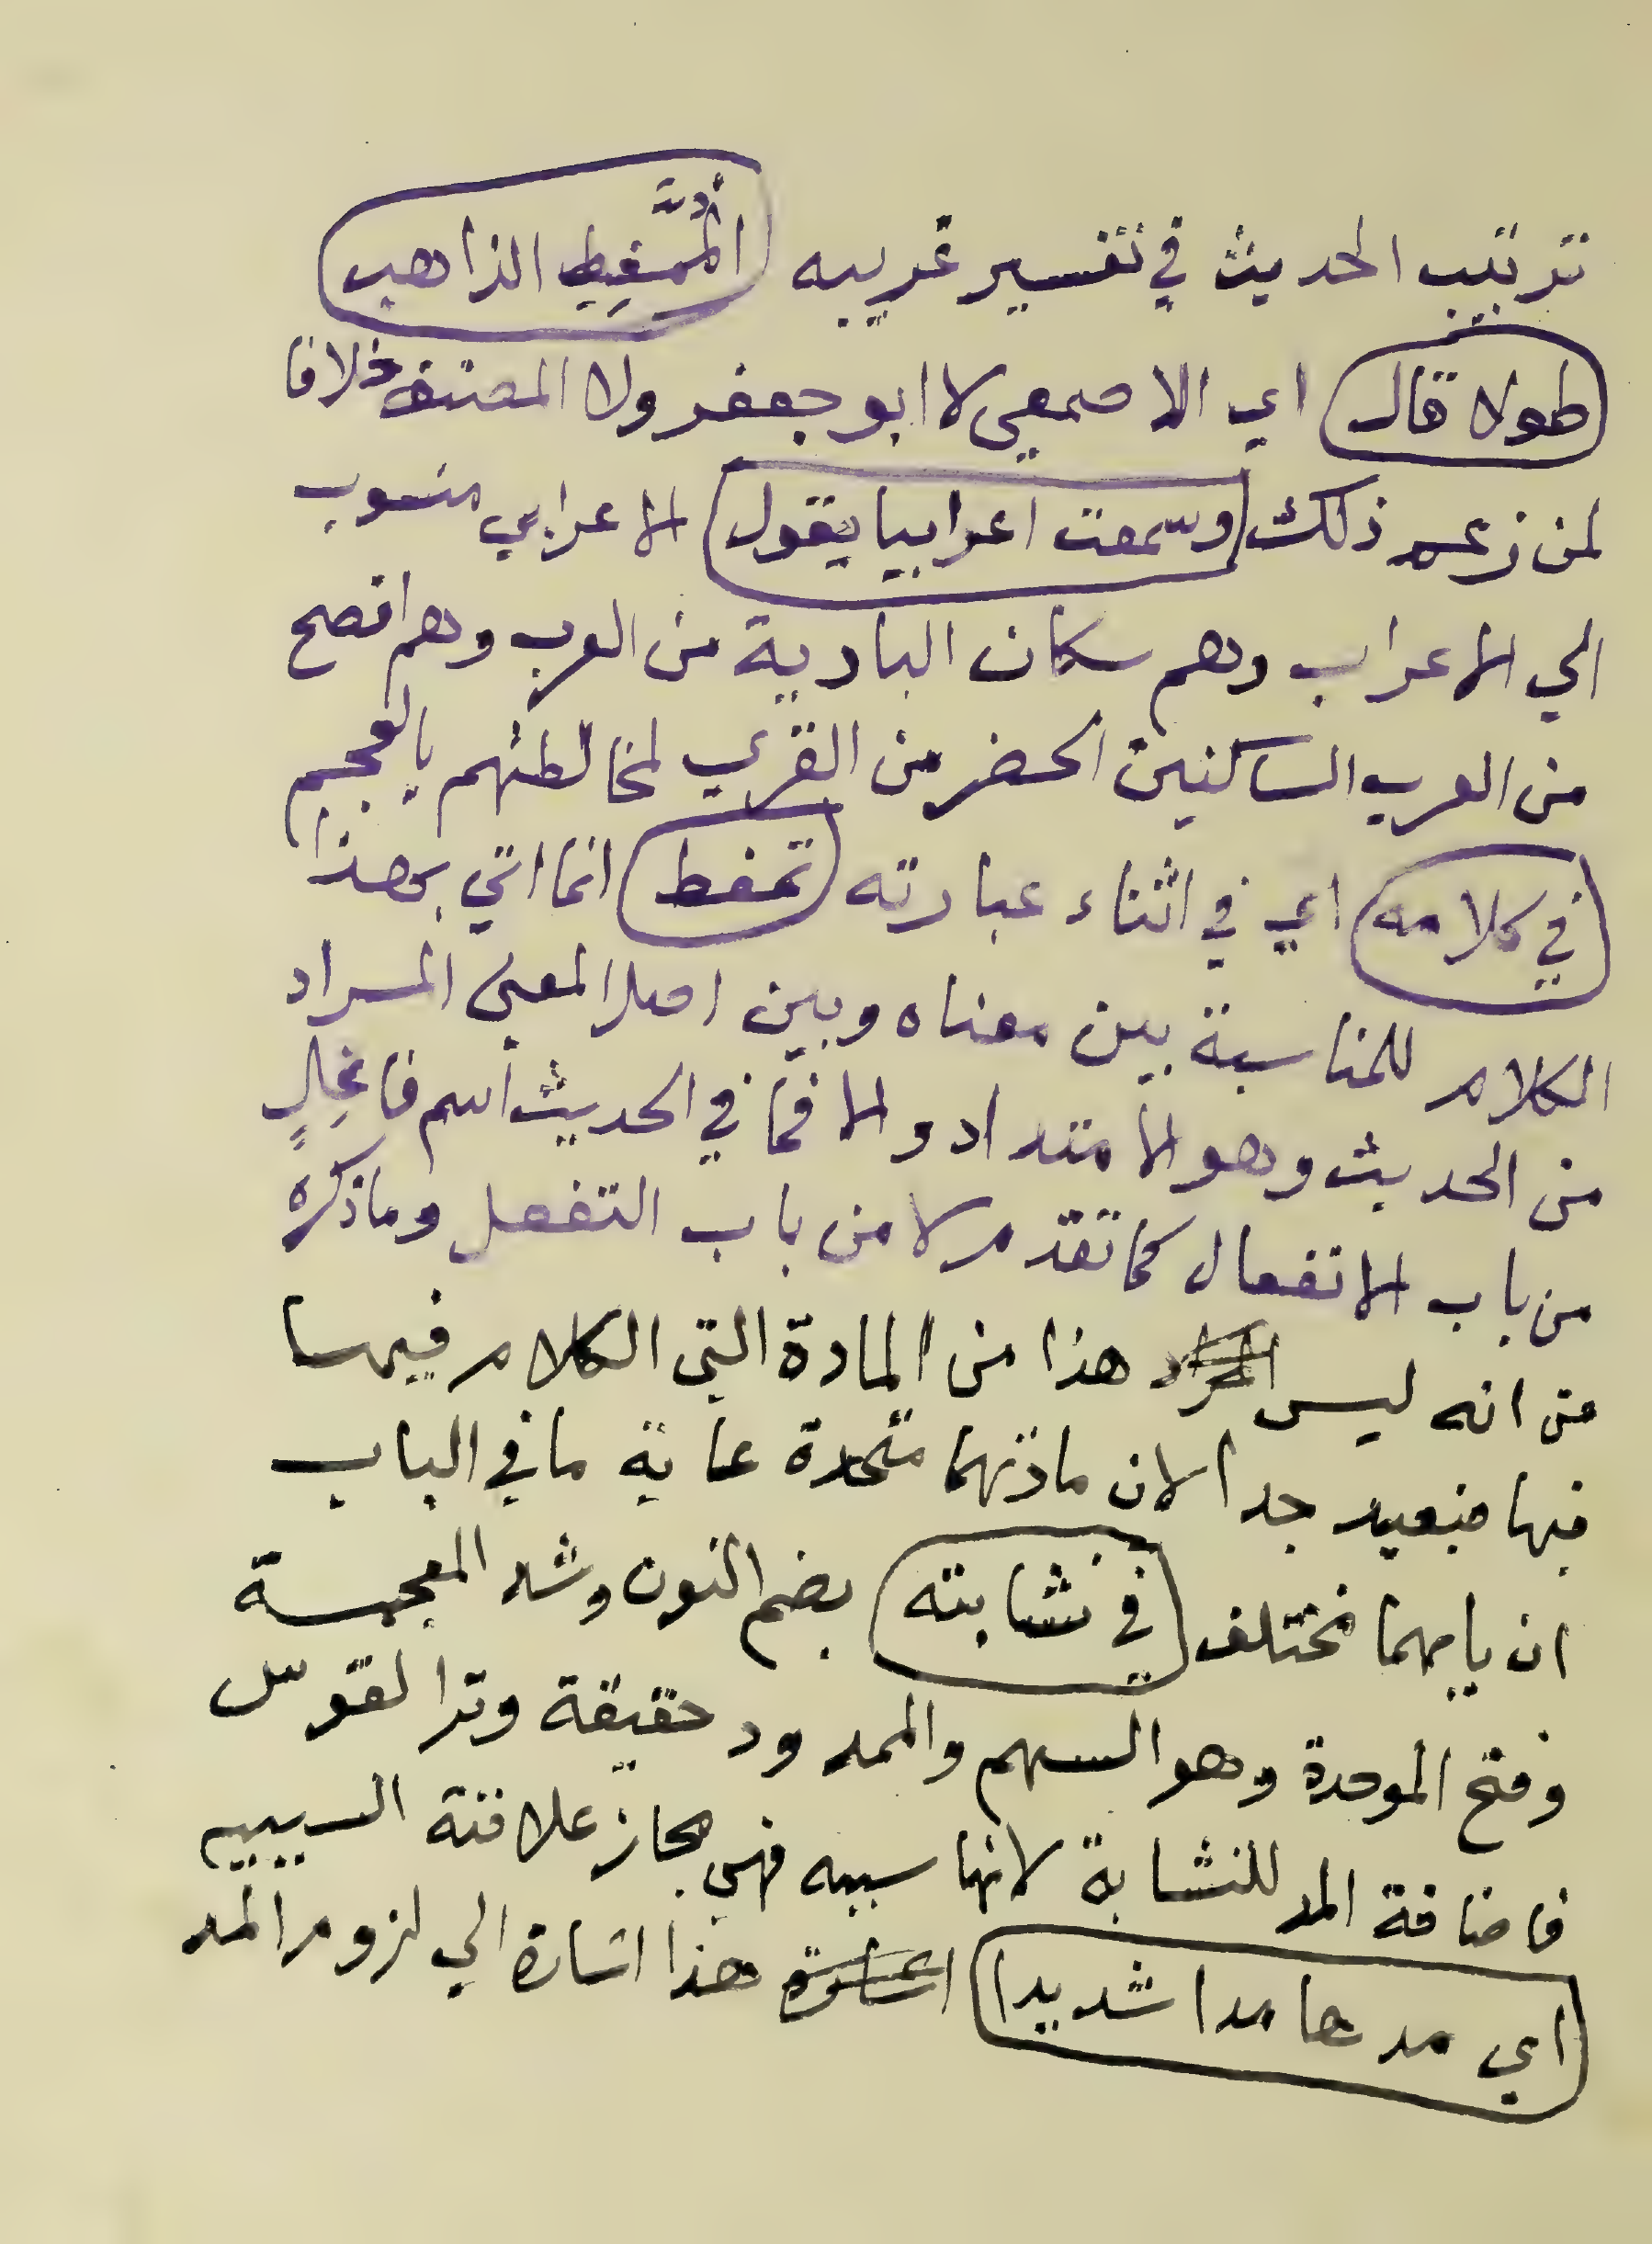 ترتيب الحديث في تفسير غريبه المُمَّغِط الذاهب
طولا قال اي الاصمعي لا ابو جعفر ولا المصنف خلافا
لمن زعم ذلك وسمعت اعرابيا يقول الاعرابي منسوب
الي الاعراب وهم سكان البادية من العرب وهم افصح
من العرب الساكنين الحضر من القري لمخالطتهم بالعجم
في كلامه اي في اثناء عبارته تمغط انما اتي بهذا
الكلام للمناسبة بين معناه وبين اصل المعنى المراد
من الحديث وهو الامتداد والا فما في الحديث اسم فاعِلٍ
من باب الانفعال كما تقدم لا من باب التفعل وما ذكره
من انه ليس هذا من المادة التي الكلام فيها
فيها فبعيد جدا لان مادتهما متحدة غاية ما في الباب
ان بابهما مختلف في نشابته بضم النون وشد المعجمة
وفتح الموحدة وهو السهم والممدود حقيقة وتر القوس
فاضافة المد للنشابة لانها سببه فهي مجاز علاقته السببيه
اي مدها مدا شديدا هذا اشارة الي لزوم المد